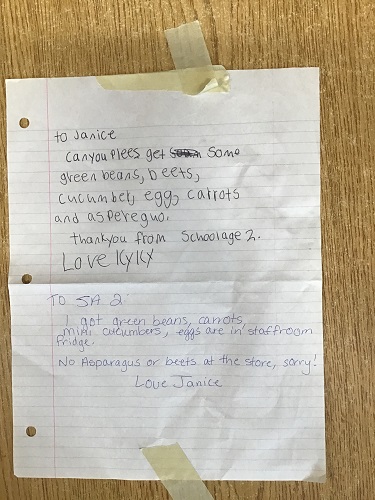 to Janice
can you plees get some
green beans, beets,
cucumber, egg, carrots
and aspereguo.
thankyou from Schoolage 2.
Love KyKy
TO SA 2
I got green beans, carrots,
mini cucumbers, eggs are in staffroom
fridge.
No Asparagus or beets at the store, sorry!
Love Janice